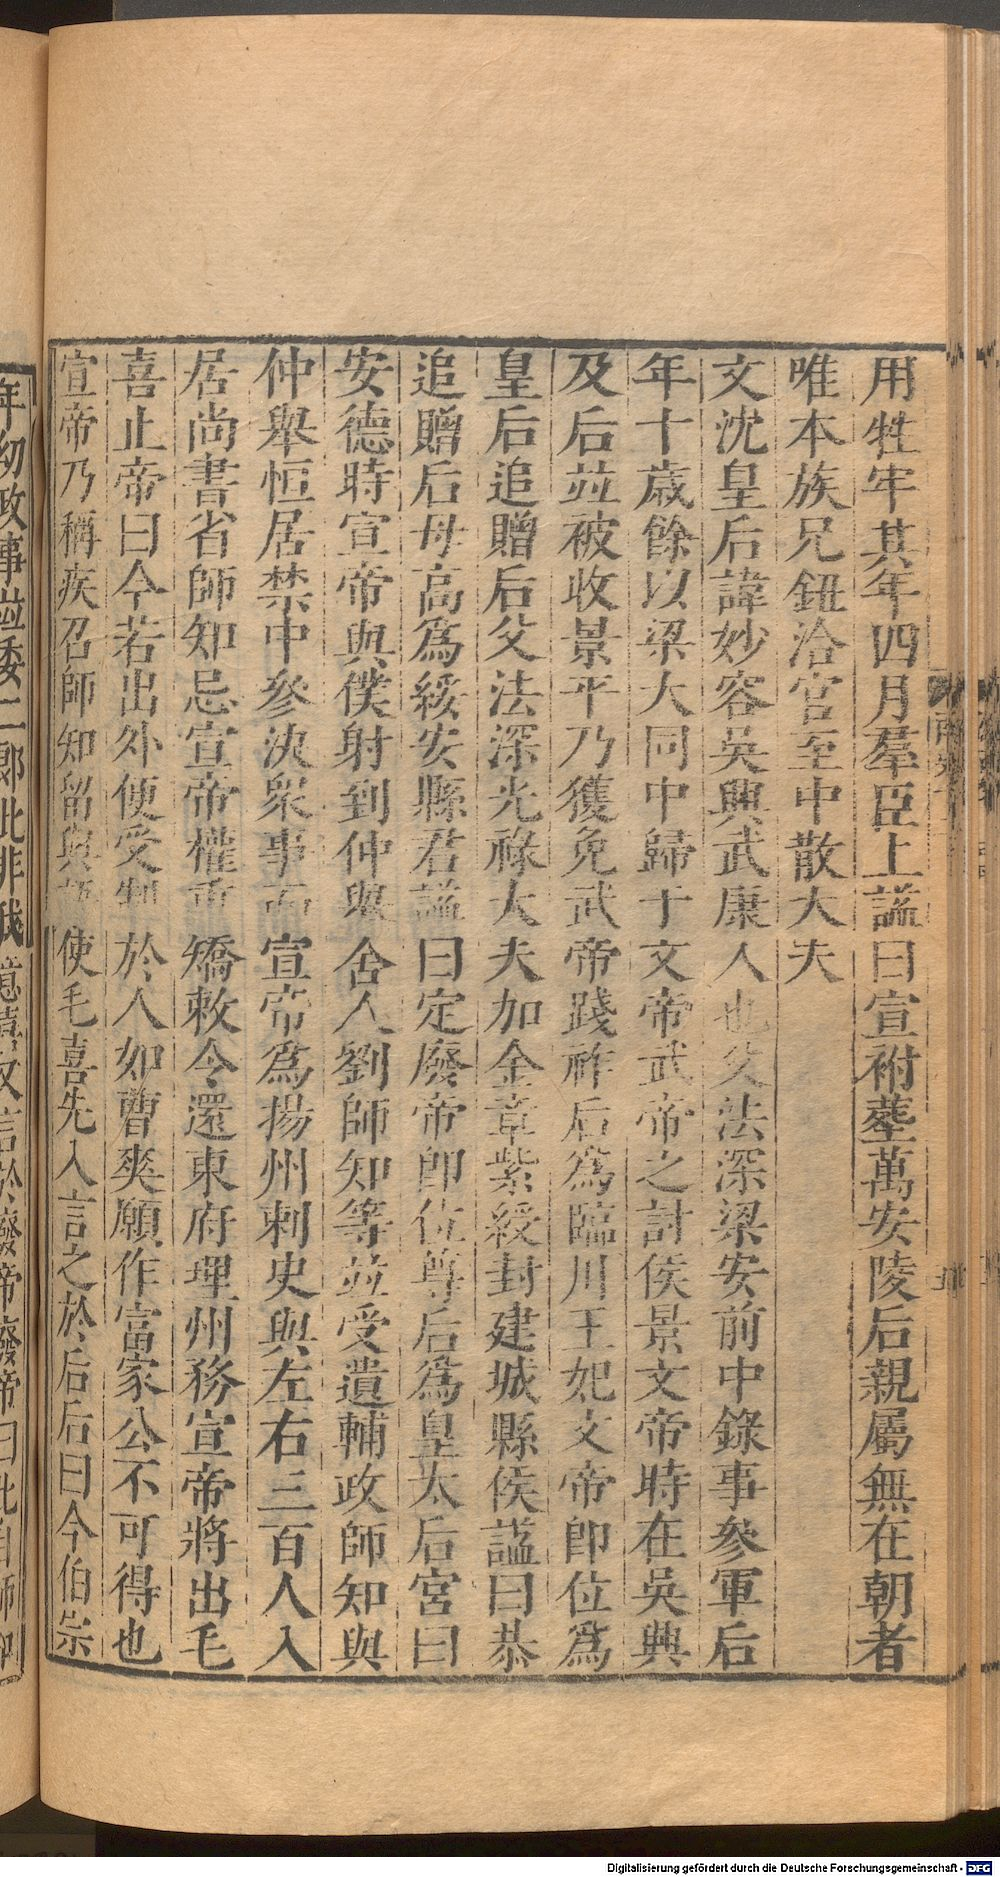 用牲牢其年四月羣臣上謚曰宣祔塟萬安陵后親屬無在朝者
唯本族兄鈕洽官至中散大夫
文沈皇后諱妙容吳興武康人也父法深梁安前中錄事參軍后
年十歲餘以梁大同中歸于文帝武帝之討侯景文帝時在吳興
及后並被收景平乃獲免武帝踐祚后爲臨川王妃文帝卽位爲
皇后追贈后父法深光祿大夫加金章紫綬封建城縣侯謚曰恭
追贈后母高爲綏安縣君謚曰定廢帝卽位尊后爲皇太后宮曰
安德時宣帝與僕射到仲舉舍人劉師知等並受遺輔政師知與
仲舉恒居禁中參決衆事而宣帝爲揚州刺史與左右三百人入
居尚書省師知忌宣帝權重矯敕令還東府理州務宣帝將出毛
喜止帝曰今若出外便受制於人如曹爽願作富家公不可得也
宣帝乃稱疾召師知留與語使毛喜先入言之於后后曰今伯宗
年幼政事並委二郎此非我意喜又言於廢帝廢帝曰此自師知
Digitalisierung gefördert durch die Deutsche Forschungsgemeinschaft - DFG